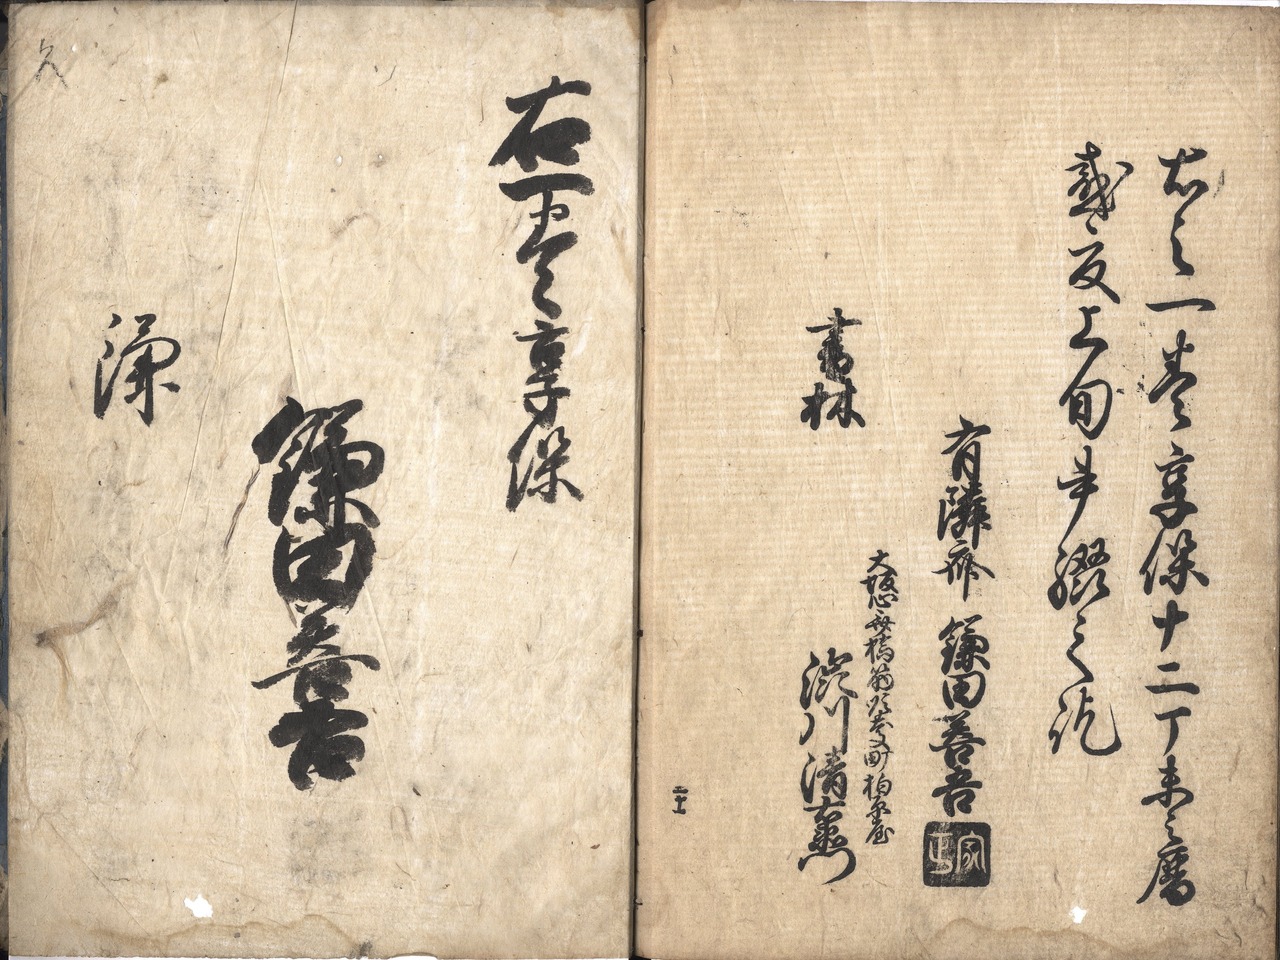 右之一巻享保十二丁未之暦
盛夏上旬井綴之訖
有隣斎 鎌田善吾
大坂心斎橋筋順慶町柏原屋
書林 渋川清右衛門
二十
右一巻之享保
鎌田善吾
鎌
久